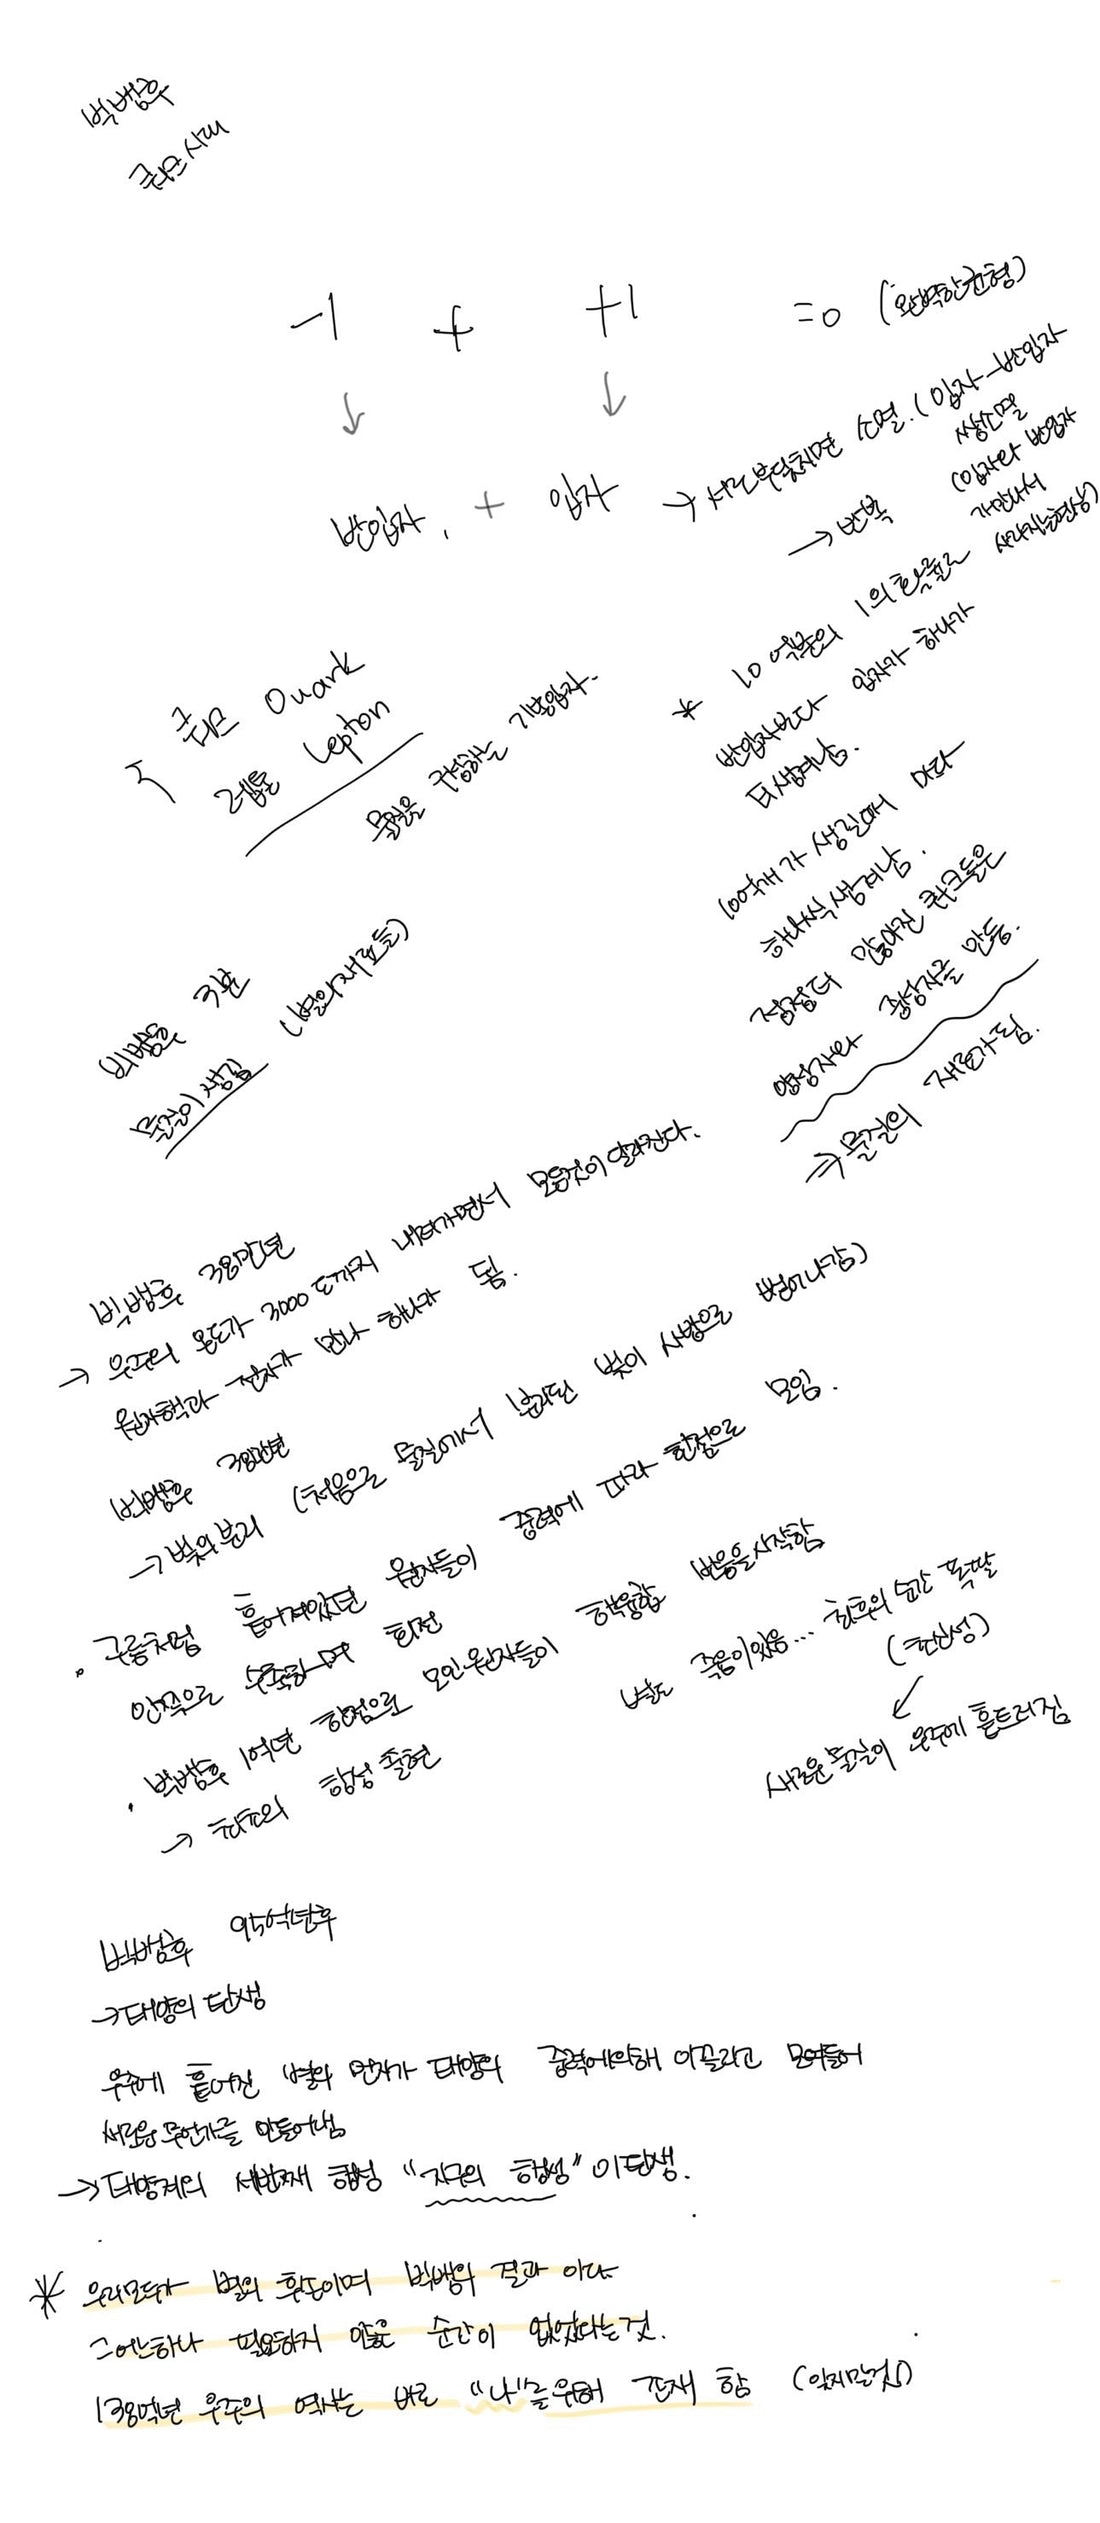 빅뱅후
쿼크시대
-1 + +1 =0 (완벽한균형)
↓ ↓
반입자, + 입자 → 서로부딪치면 소멸. (입자-반입자
쌍소멸
(입자와 반입자
가만나서
사라지는현상)
→ 반복
쿼크 Quark
렙톤 Lepton
물질을 구성하는 기본입자.
* 10억분의 1의 확률로
반입자보다 입자가 하나가
더생겨남.
10억개가 생길때 마다
하나씩 생겨남.
점점더 많아진 쿼크들은
양성자와 중성자를 만듦.
⇒ 물질의 재료가 됨.
빅뱅후 3분
물질이 생김 (별의재료들)
빅뱅후 38만년
→ 우주의 온도가 3000℃까지 내려가면서 모든것이 달라진다.
원자핵과 전자가 만나 하나가 됨.
빅뱅후 38만년
→ 빛의분리 (처음으로 물질에서 분리된 빛이 사방으로 뻗어나감)
. 구름처럼 흩어져있던 원자들이 중력에 따라 한점으로 모임.
안쪽으로 수축하며 회전
. 빅뱅후 1억년 한점으로 모인원자들이 핵융합 반응을시작함
→ 최초의 항성 출현
별도 죽음이있음... 최후의 순간 폭발
(초신성)
새로운 물질이 우주에 흩트러짐
빅뱅후 95억년후
→ 태양의 탄생
우주에 흩어진 별의 먼지가 태양의 중력에의해 이끌리고 모여들어
새로운 무언가를 만들어냄
→ 태양계의 세번째 행성 "지구의 행성" 이탄생.
* 우리모두가 별의 후손이며 빅뱅의 결과 이다
그어느하나 필요하지 않은 순간이 없었다는것.
138억년 우주의 역사는 바로 "나"를위해 존재 함 (잊지말것!)